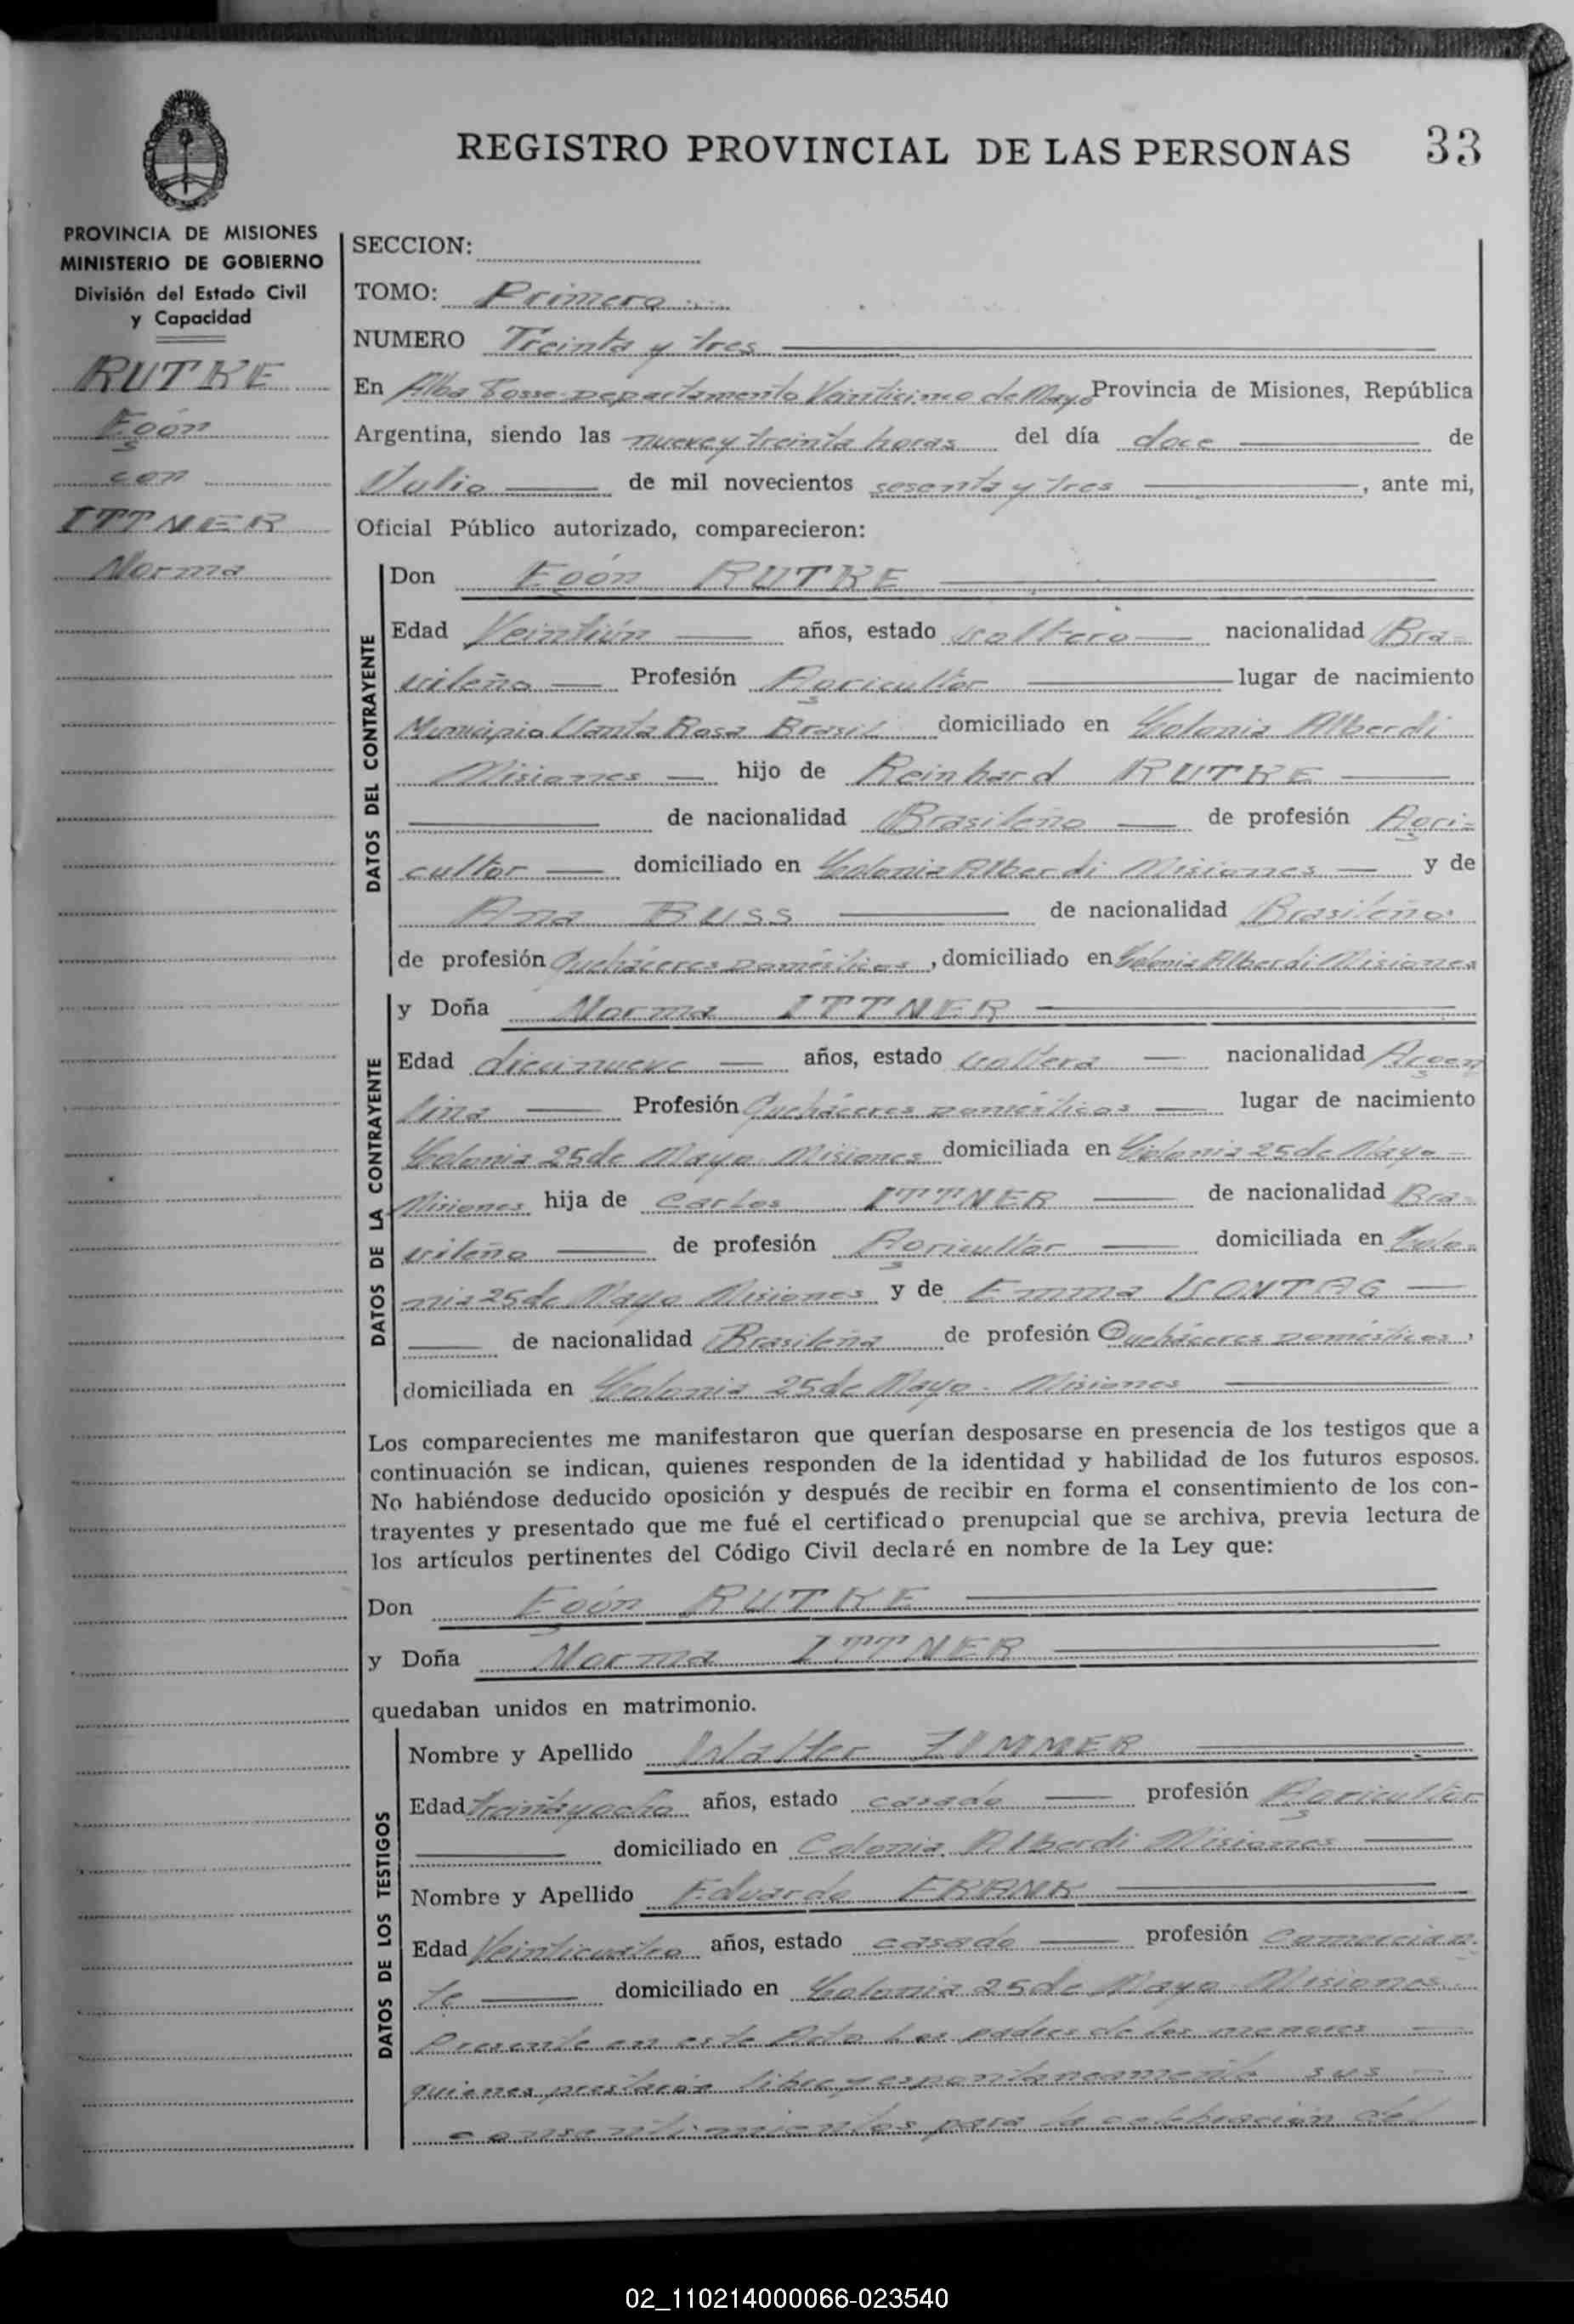 REGISTRO PROVINCIAL DE LAS PERSONAS 33
PROVINCIA DE MISIONES
MINISTERIO DE GOBIERNO
División del Estado Civil
y Capacidad
RUTKE
Egón
con
ITTNER
Norma
SECCION:
TOMO: Primero
NUMERO Treinta y tres
En Alba Posse Departamento Veinticinco de Mayo Provincia de Misiones, República
Argentina, siendo las nueve y treinta horas del día doce de
Julio de mil novecientos sesenta y tres, ante mi,
Oficial Público autorizado, comparecieron:
DATOS DEL CONTRAYENTE
Don Egón RUTKE
Edad Veintiún años, estado soltero nacionalidad Bra-
sileña Profesión Agricultor lugar de nacimiento
Municipio Santa Rosa Brasil domiciliado en Colonia Alberdi
Misiones hijo de Reinhard RUTKE
de nacionalidad Brasileño de profesión Agri-
cultor domiciliado en Colonia Alberdi Misiones y de
Ana BUSS de nacionalidad Brasileña
de profesión Quehaceres Domésticos, domiciliado en Colonia Alberdi Misiones
DATOS DE LA CONTRAYENTE
y Doña Norma ITTNER
Edad diecinueve años, estado soltera nacionalidad Argen
tina Profesión Quehaceres Domésticos lugar de nacimiento
Colonia 25 de Mayo Misiones domiciliada en Colonia 25 de Mayo
Misiones hija de Carlos ITTNER de nacionalidad Bra-
sileño de profesión Agricultor domiciliada en Colo-
nia 25 de Mayo Misiones y de Emma SONTAG
de nacionalidad Brasileña de profesión Quehaceres Domésticos,
domiciliada en Colonia 25 de Mayo - Misiones
Los comparecientes me manifestaron que querían desposarse en presencia de los testigos que a
continuación se indican, quienes responden de la identidad y habilidad de los futuros esposos.
No habiéndose deducido oposición y después de recibir en forma el consentimiento de los con-
trayentes y presentado que me fué el certificado prenupcial que se archiva, previa lectura de
los artículos pertinentes del Código Civil declaré en nombre de la Ley que:
Don Egón RUTKE
y Doña Norma ITTNER
quedaban unidos en matrimonio.
DATOS DE LOS TESTIGOS
Nombre y Apellido Walter ZIMMER
Edad treinta y ocho años, estado casado profesión Agricultor
domiciliado en Colonia Alberdi Misiones
Nombre y Apellido Eduardo FRANK
Edad Veinticuatro años, estado casado profesión Comercian-
te domiciliado en Colonia 25 de Mayo Misiones
Presente en este Acto los padres de los menores
quienes prestarón libre y espontaneamente sus
consentimientos para la celebración del
02_110214000066-023540